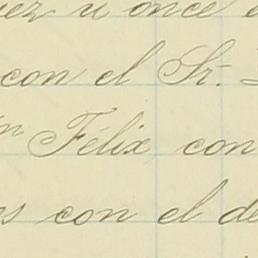 u once
con el Sr.
Félix, con
con el de